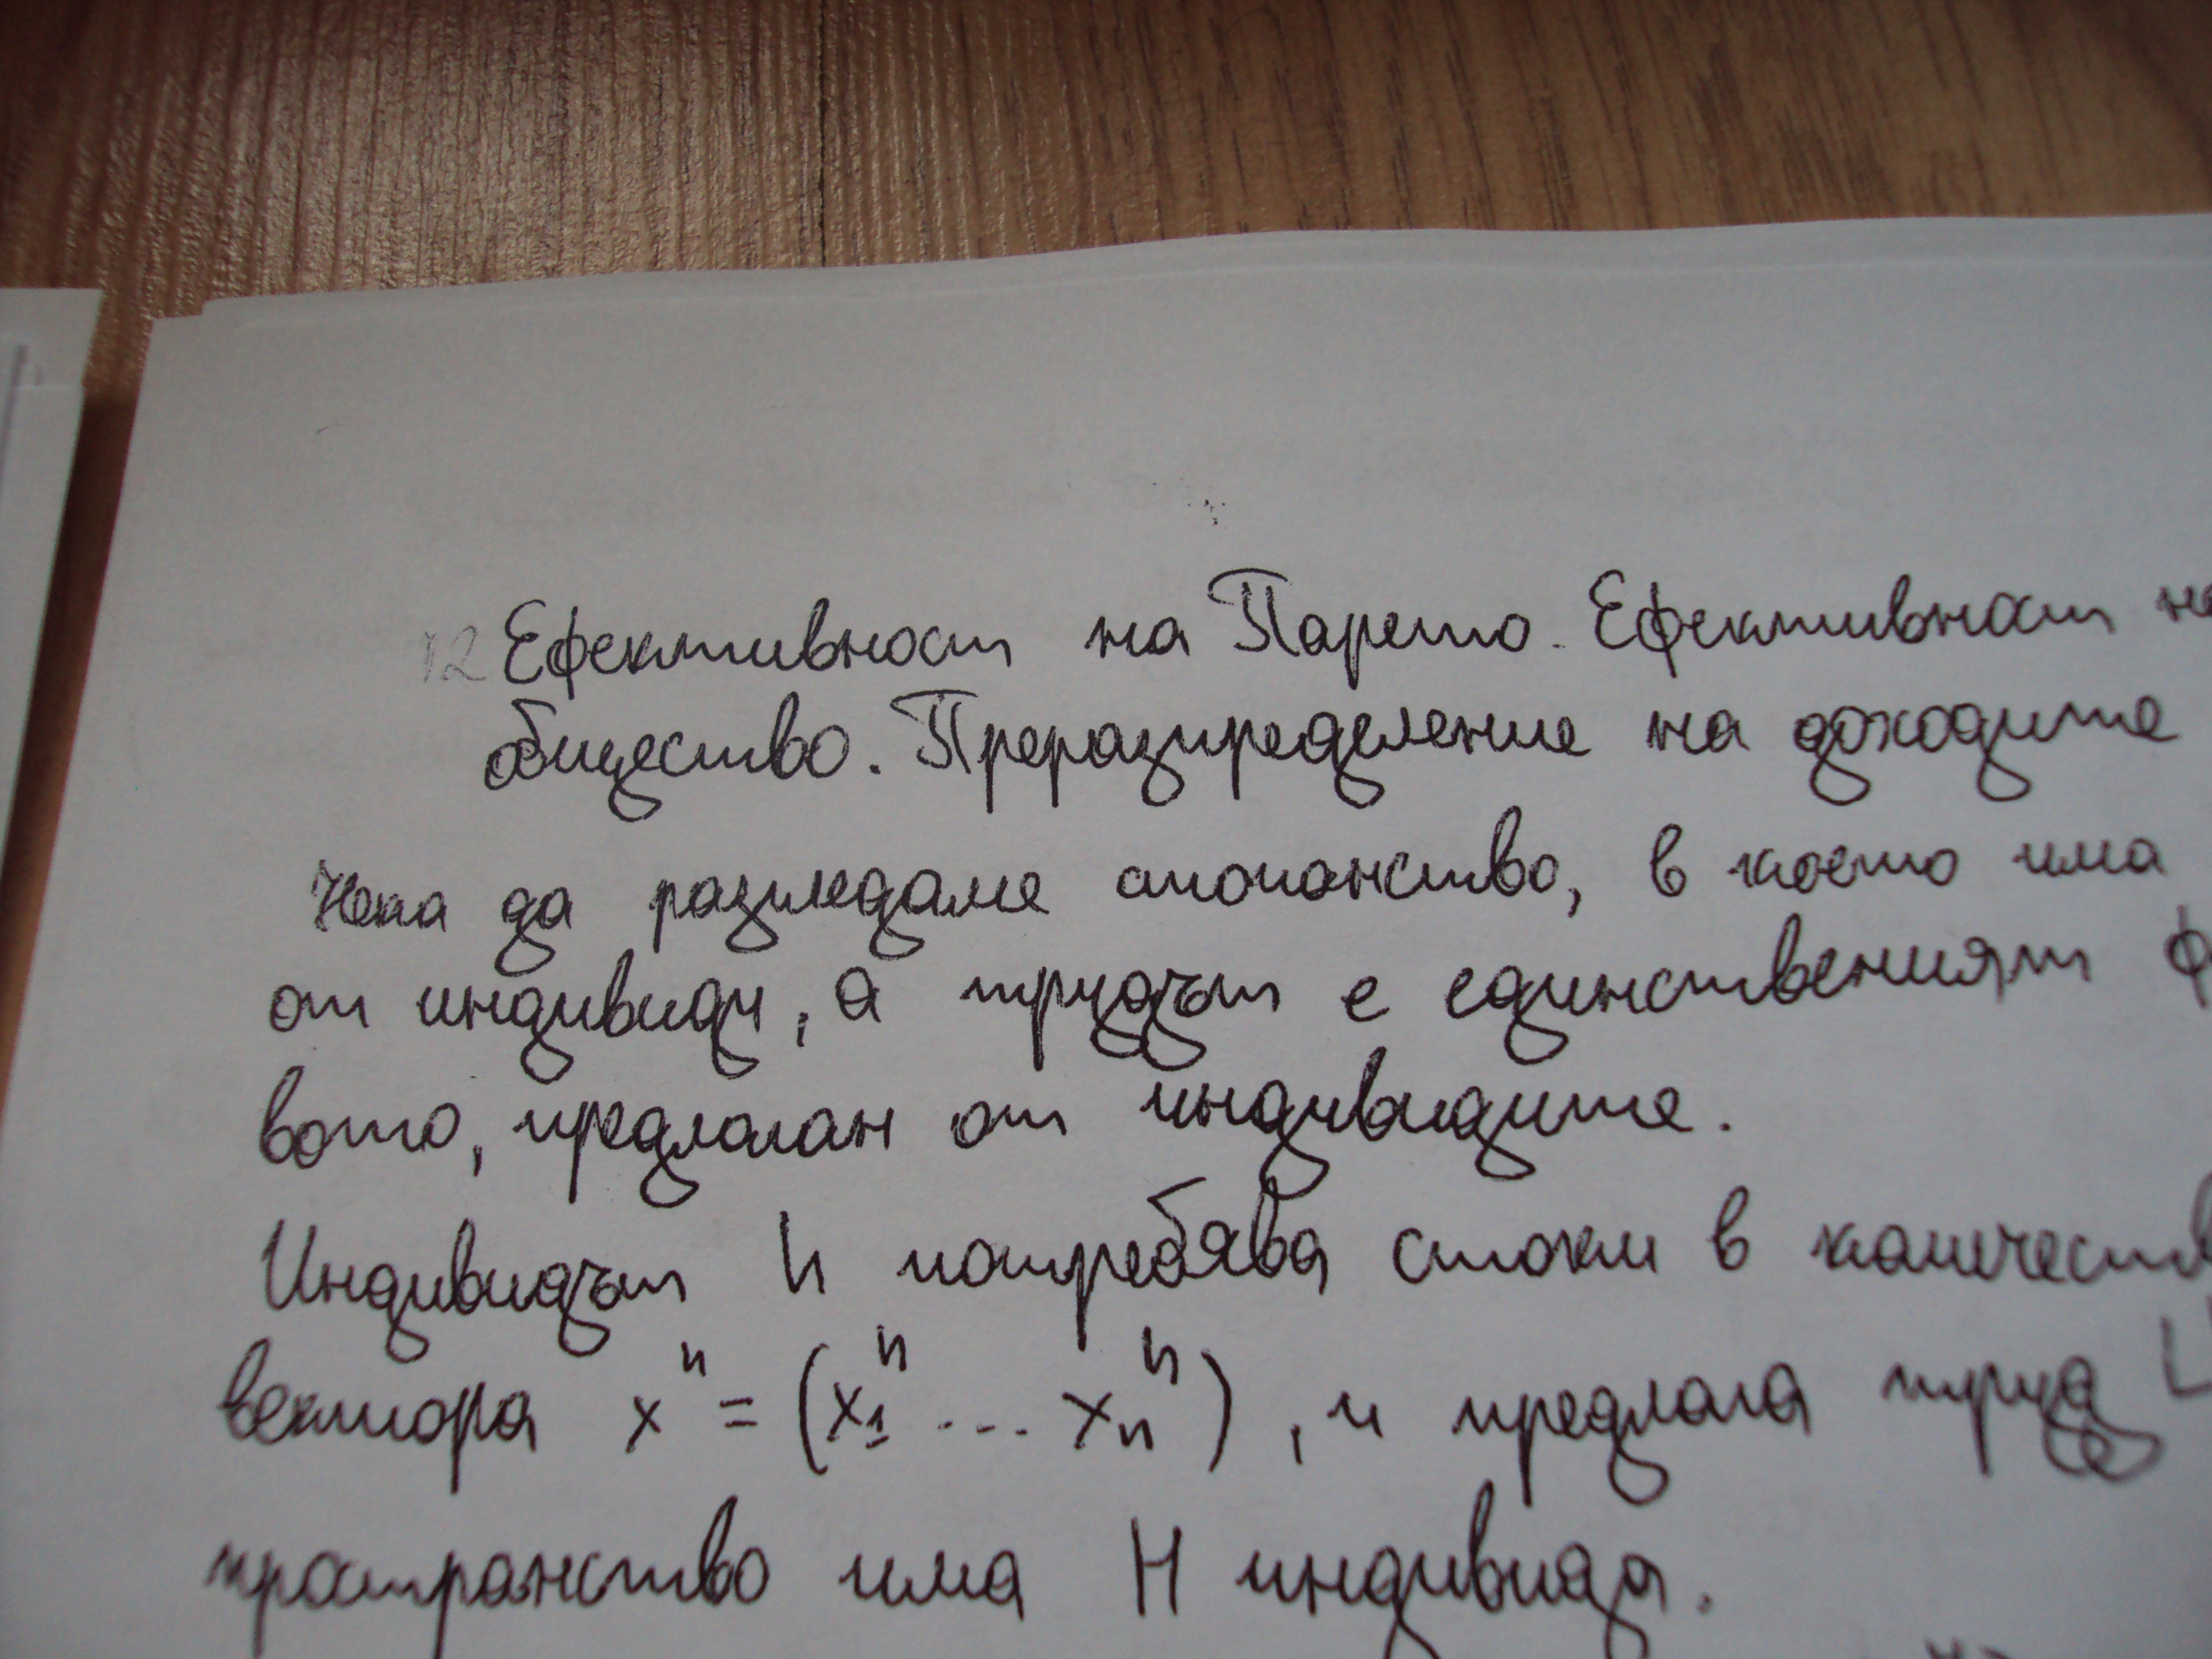 12 Ефективност на Парето. Ефективност на
общество. Преразпределение на доходите
Нека да разгледаме стопанство, в което има
от индивиди, а трудът е единственият ф
вото, предлаган от индивидите.
Индивидът h потребява стоки в количеств
вектора xʰ = (x₁ʰ ... xₙʰ), и предлага труд L
пространство има H индивида.